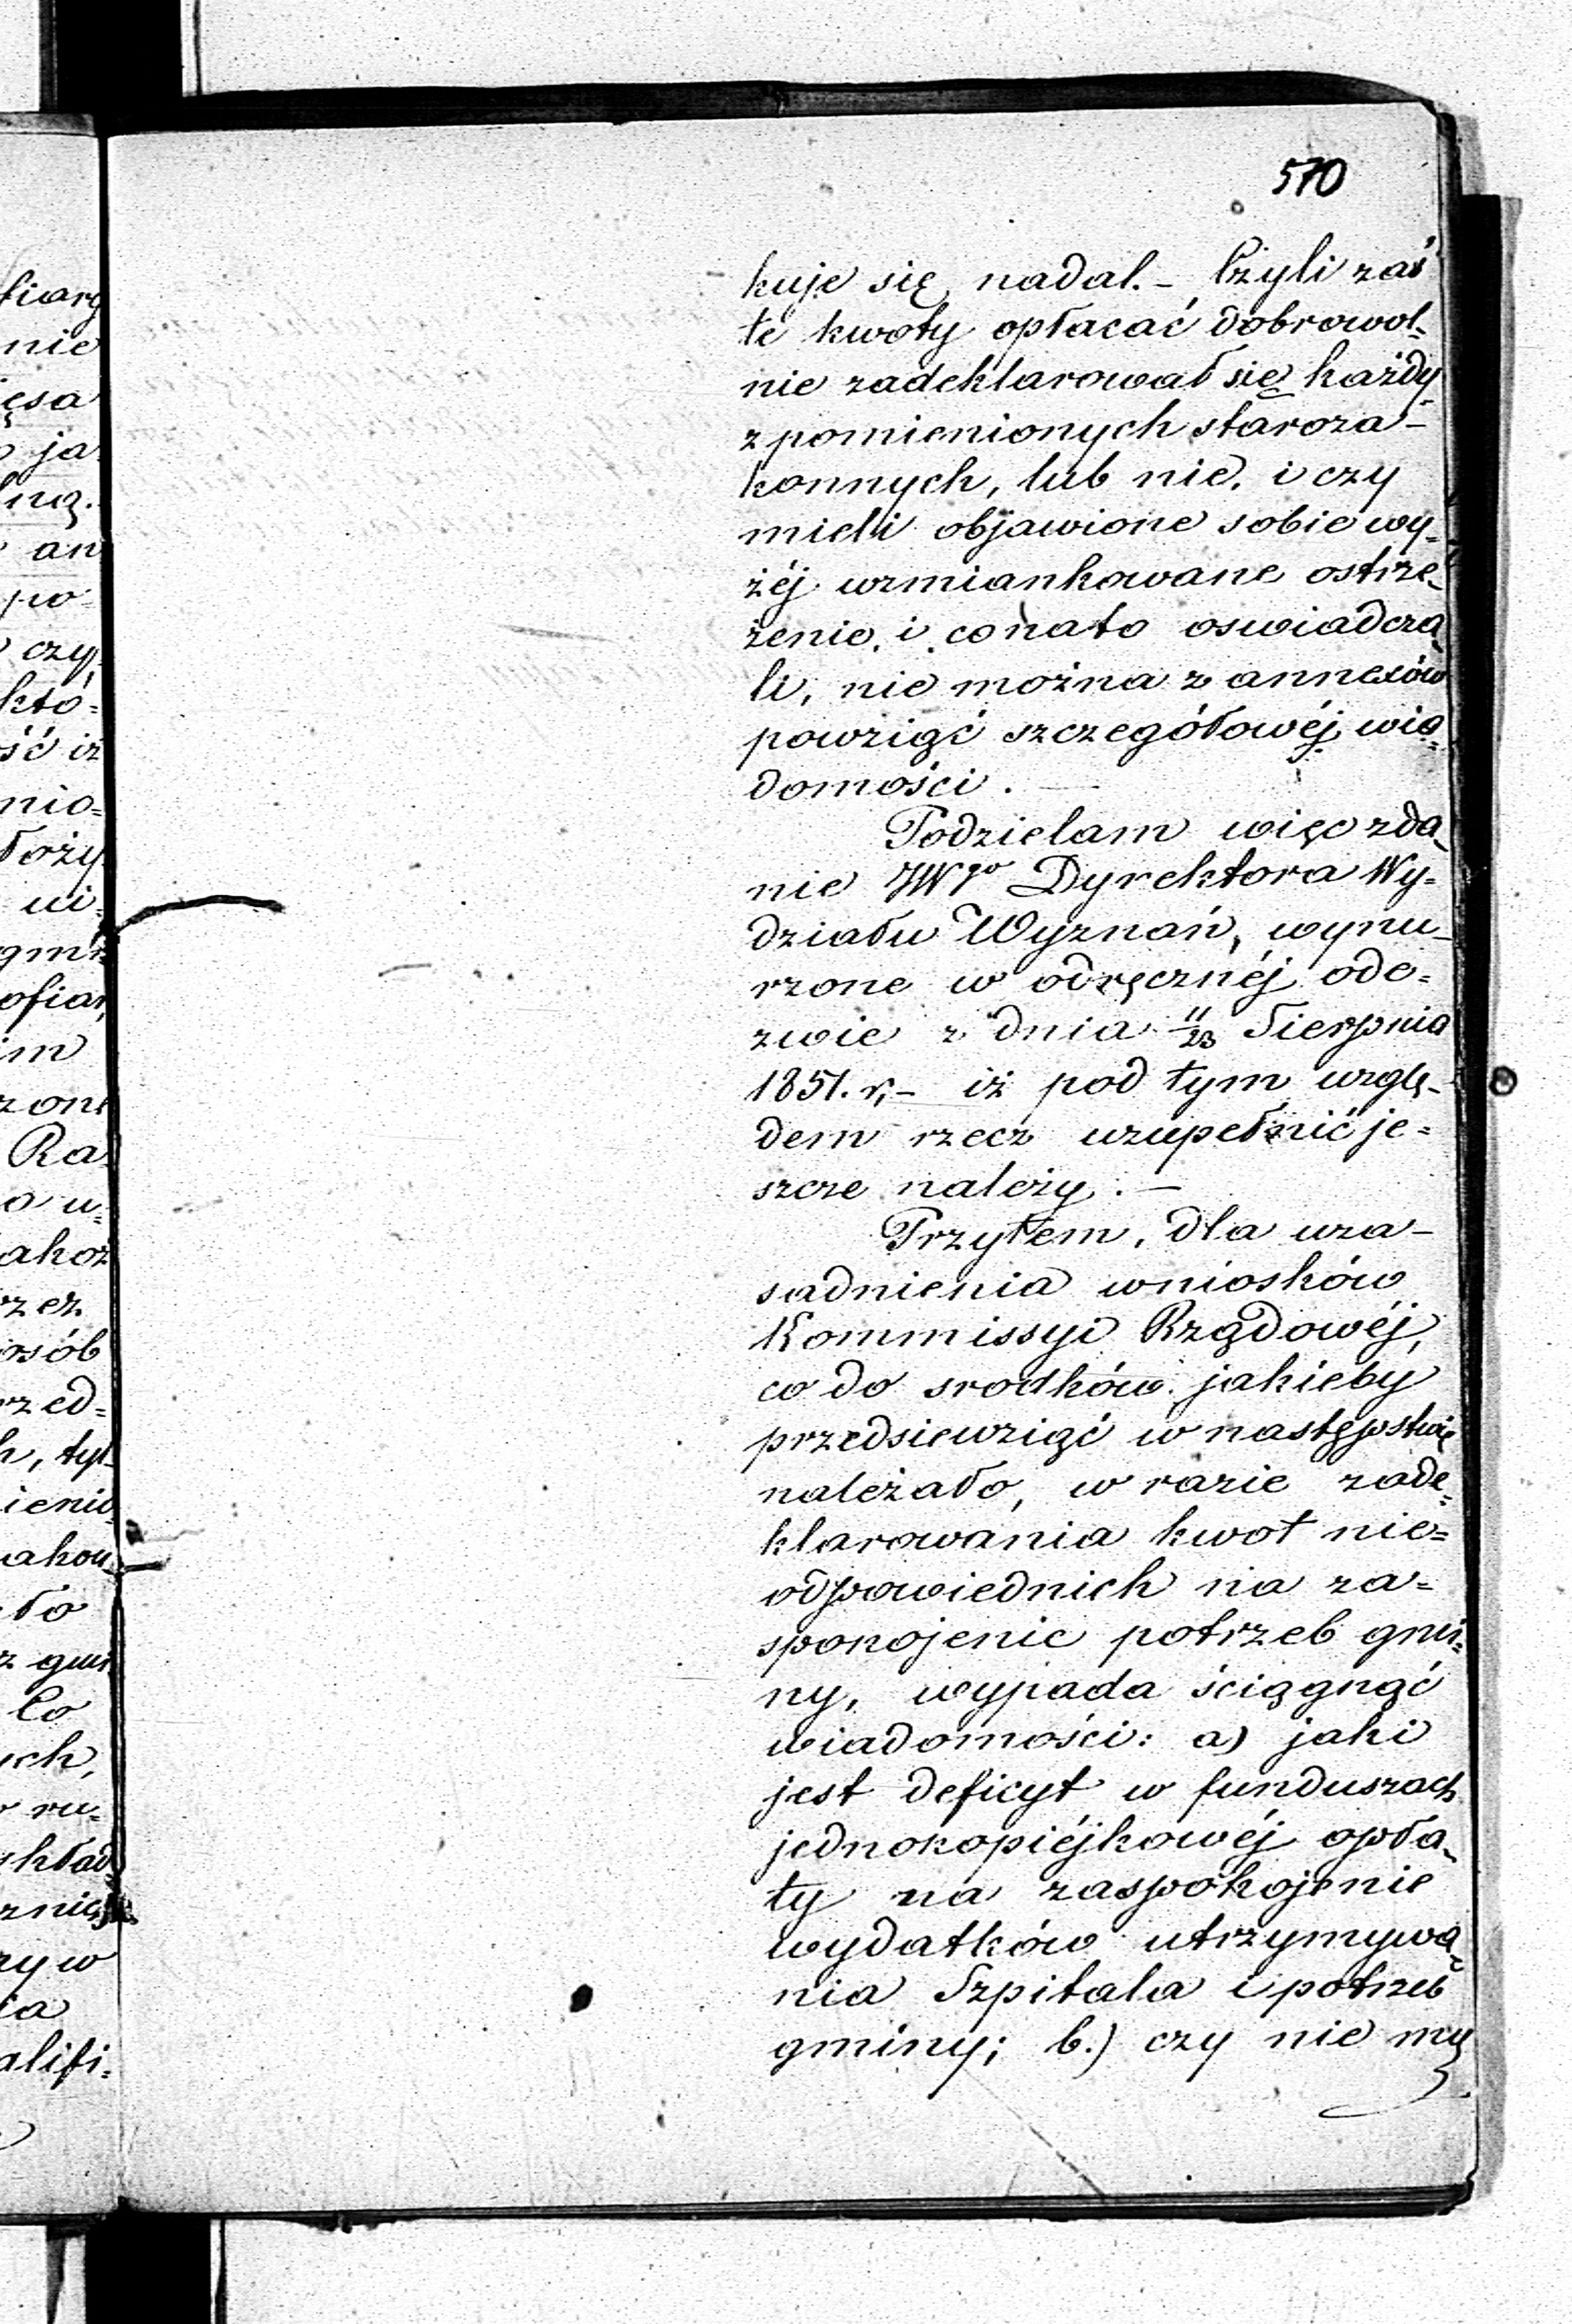 570
kuje się nadal. - Czyli zaś
te kwoty opłacać dobrowol=
nie zadeklarował się każdy
z pomienionych staroza-
konnych, lub nie, i czy
mieli objawione sobie wy=
żéj wzmiankowane ostrze=
żenie, i co nato oswiadcza
li, nie można z annexów
powziąść szczegółowéj wia=
domości. -
Podzielam więc zda
nie JWgo Dyrektora Wy=
działu Wyznań, wynu-
rzone w odręcznéj ode=
zwie z dnia 11/23 Sierpnia
1851. r, - iż pod tym wzglę-
dem rzecz uzupełnić je=
szcze należy. -
Przytem, dla uza-
sadnienia wniosków
Kommissyi Rządowéj,
co do srodków jakieby
przedsiewziąć w następstwie
należało, w razie zade=
klarowania kwot nie=
odpowiednich na za=
spokojenie potrzeb gmi=
ny, wypada ściągnąć
wiadomości: a) jaki
jest deficyt w funduszach
jednokopiéjkowéj opła
ty na zaspokojenie
wydatków utrzymywa
nia Szpitala i potrzeb
gminy; b.) czy nie mę
fiarę
nie
ęsa
ja
lną.
an
po=
czy
któ=
ść iż
nio=
łoży
ui=
ofiar,
im
zone
Ra
o u=
akoż
rzez
osób
rzed=
h, tyl
ienio
akon
ło
z gmi
Co
ych,
ru=
kład
znic
ry w
ia
alifi=